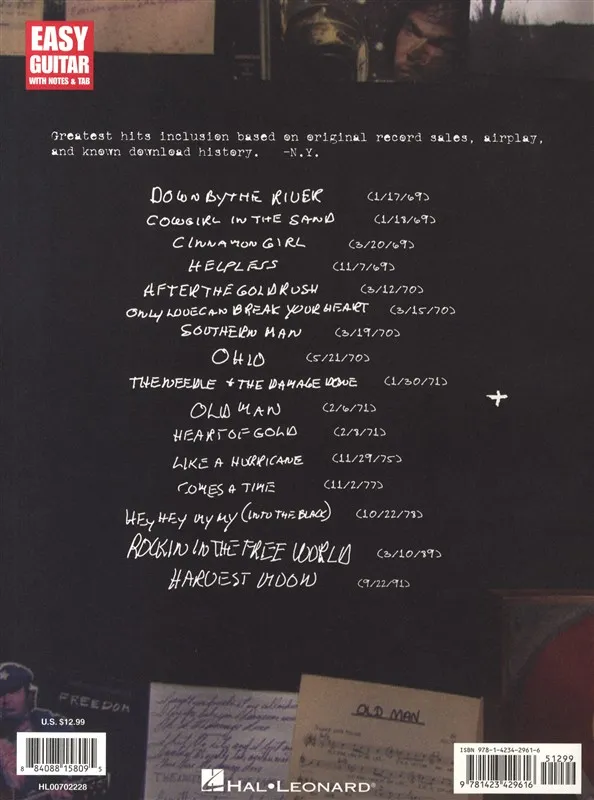 EASY
GUITAR
WITH NOTES & TAB
Greatest hits inclusion based on original record sales, airplay,
and known download history. -N.Y.
DOWN BY THE RIVER (1/17/69)
COWGIRL IN THE SAND (1/18/69)
CINNAMON GIRL (3/20/69)
HELPLESS (11/7/69)
AFTER THE GOLDRUSH (3/12/70)
ONLY LOVE CAN BREAK YOUR HEART (3/15/70)
SOUTHERN MAN (3/19/70)
OHIO (5/21/70)
THE NEEDLE + THE DAMAGE DONE (1/30/71)
OLD MAN (2/6/71)
HEART OF GOLD (2/8/71)
LIKE A HURRICANE (11/29/75)
COMES A TIME (11/2/77)
HEY HEY MY MY (INTO THE BLACK) (10/22/78)
ROCKIN IN THE FREE WORLD (3/10/89)
HARVEST MOON (9/22/91)
FREEDOM
OLD MAN
U.S. $12.99
8 84088 15809 5
HL00702228
HAL•LEONARD
ISBN 978-1-4234-2961-6
51299
9 781423 429616